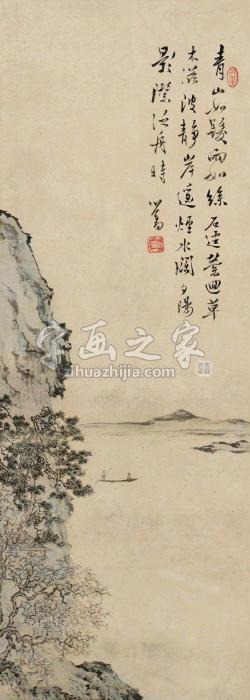 青山如髮雨如絲石逕縈迴草
木滋波靜岸遥煙水闊夕陽
影際泛舟時 心畬
字画之家
zihuazhijia.com